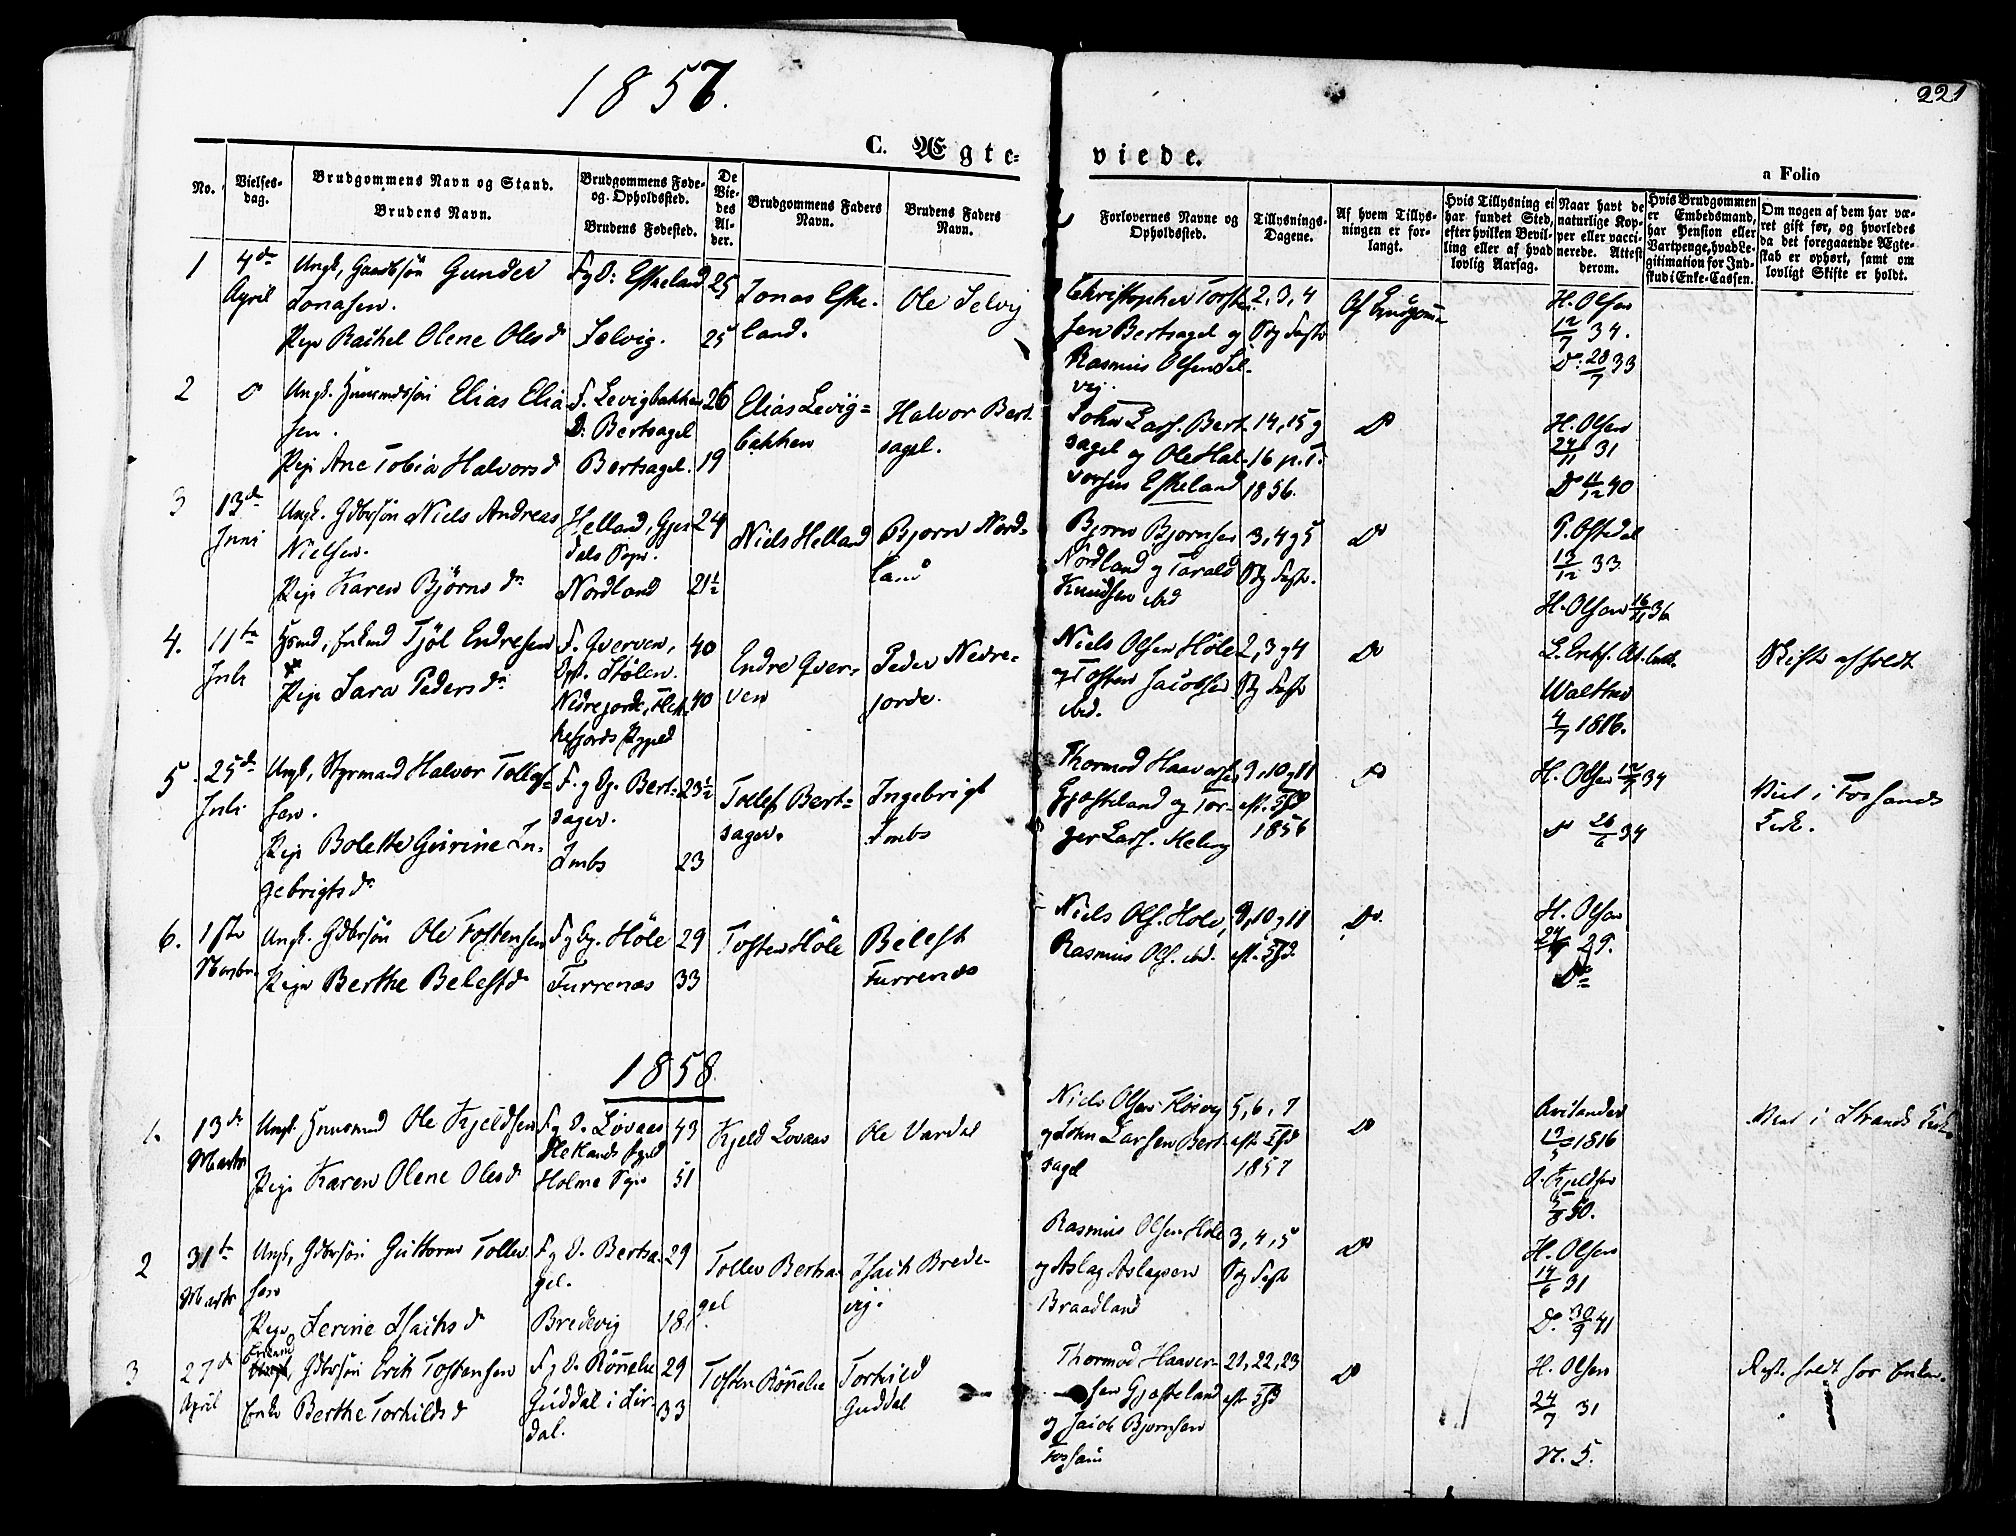 1857.
221
C. Ægte=
viede.
a Folio
No.
Vielses-
dag.
Brudgommens Navn og Stand.
Brudens Navn.
Brudgommens Føde-
og Opholdssted.
Brudens Fødested.
De
Vie-
des
Al-
der.
Brudgommens Faders
Navn.
Brudens Faders
Navn.
Forlovernes Navne og
Opholdssted.
Tillysnings-
Dagene.
Af hvem Tillys-
ningen er for-
langt.
Hvis Tillysning ei
har fundet Sted,
efter hvilken Bevil-
ling eller af hvad
lovlig Aarsag.
Naar havt de
naturlige Kop-
per eller vacci-
nerede. Attest
derom.
Hvis Brudgommen
er Embedsmand,
har Pension eller
Vartpenge, hvad Le-
gitimation for Ind-
skud i Enke-Cassen.
Om nogen af dem har væ-
ret gift før, og hvorledes
da det foregaaende Ægte-
skab er ophørt, samt om
lovligt Skifte er holdt.
1
4de
April
Ungk, Gaardbsøn Gunder
Jonasen.
Pige Rachel Olene Olesd
F og O: Eskeland
Selvig.
25
25
Jonas Eske-
land.
Ole Selvig
Christopher Torsten
sen Bertsagel og
Rasmus Olsen Sel-
vig.
2, 3, 4
Sdg Faste
Af Brudgom=
H. Olsen
12/7 34.
Do: 28/7 33
2
Do
Ungk. Huusmdssøn Elias Elia
sen.
Pige Ane Tobia Halvorsd
F. Levigbakken
O: Bertsagel
Bertsagel.
26
19
Elias Levig=
bakken
Halvor Bert
sagel.
John Lars. Bert
sagel og Ole Hal-
vorsen Eskeland
14, 15 og
16 p. T.
1856.
Do
H. Olsen
24/11 31
Do 11/12 40
3
13de
Juni
Ungk. Gdbrsøn Niels Andreas
Nielsen.
Pige Karen Björnsdr
Helland, Gjes
dals Pgr.
Nordland
24
21½
Niels Helland
Bjorn Nord-
land
Bjorn Bjornsen
Nordland og Tarald
Knudsen ibd
3, 4 og 5
Sdg Faste.
Do
P. Oftedal
13/12 33
H. Olsen 16/11 36
4.
11te
Juli
Hsmd, Enkmd Tjöl Endresen
Pige Sara Pedersdr
F. Qverven,
Opt. Stölen.
Nedrejorde, Flek-
kefjords Pgjeld
40
40
Endre Qver-
ven
Peder Nedre-
jorde.
Niels Olsen Höle
og Tosten Jacobsen
ibd.
2, 3 og 4
Sdg Faste
Do
Walther
4/7 1816.
Skifte afholdt
5
25de
Juli
Ungk, Styrmand Halvor Tollefs-
sen.
Pige Bolette Gurine In-
gebrigtsdr
F. og Op. Bert-
sagel.
Imbs
23½
23
Tollef Bert=
sagel.
Ingebrigt
Imbs
Thormod Haavorsen
Gjosteland og Tor-
ger Lars. Helvig
9, 10 og 11
eft. Tfd
1856
Do
H. Olsen 12/7 34
Do 26/6 34
Viet i Fossands
Kirk.
6.
1ste
Novbr.
Ungk. Gdbrsøn Ole Tostensen
Pige Berthe Belestd
F og Op. Höle
Furrenæs
29
33
Tosten Höle
Belest
Furrenæs
Niels Ols. Hole,
Rasmus Ols. ibd.
9, 10 og 11
eft. Tfd.
Do.
H. Olsen
29.
Do
1858
1.
13de
Marts
Ungk. Huusmd Ole Kjeldsen
Pige Karen Olene Olesd
F og O. Lovaas
Holme Pgr
43
51
Kjeld Lovaas
Ole Vardal
Niels Olsen Höivig
og John Larsen Bert
sagel
5, 6, 7
eft. Tfd
1857
Do
1816
O. Kjeldsen
50.
Viet i Strands Kirk.
2
31te
Marts
Ungk, Gdbrsøn Guttorm Tollev
sen
Pige Serine Isachsd
F og O. Bertsa-
gel.
Bredevig
29
18
Tollev Bertsa-
gel
Isach Brede-
vig.
Rasmus Olsen Höle
og Aslag Aslagsen
Braadland
3, 4, 5
Sdg Faste
Do
H. Olsen
14/6 31
Do. 30/9 41
3
27de
April
Enkemd
Gdbrsøn Erik Tostensen
Enke Berthe Torkildsd
F og O. Rönnelie
Guddal i Lir-
dal.
29
33
Tosten Rönnelie
Torkild
Guddal
Thormod Haaver-
sen Gjosteland
og Jacob Bjornsen
Fossan
21, 22, 23
eft Tfd
Do
H. Olsen
24/7 31
N. 5.